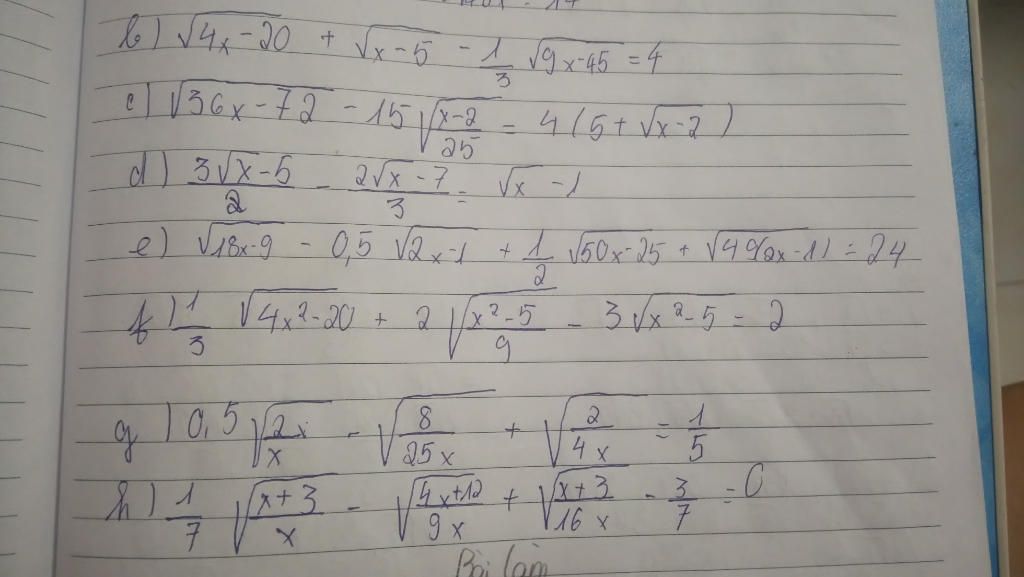 b) √(4x-20) + √(x-5) - 1/3 √(9x-45) = 4
c) √(36x-72) - 15 √((x-2)/25) = 4(5+√(x-2))
d) (3√x-5)/2 - (2√x-7)/3 = √x -1
e) √(18x-9) - 0,5 √(2x-1) + 1/2 √(50x-25) + √(49(2x-1)) = 24
f) 1/3 √(4x²-20) + 2 √((x²-5)/9) - 3√(x²-5) = 2
g) 0,5 √(2x/x) - √(8/(25x)) + √(2/(4x)) = 1/5
h) 1/7 √((x+3)/x) - √((4x+12)/(9x)) + √((x+3)/(16x)) - 3/7 = 0
Bài làm